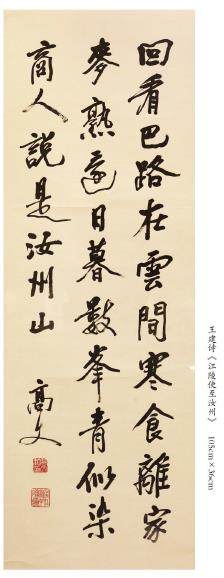 回看巴路在雲間寒食離家
麥熟還日暮數峯青似染
商人說是汝州山
高文
王建诗《江陵使至汝州》 105cm×36cm